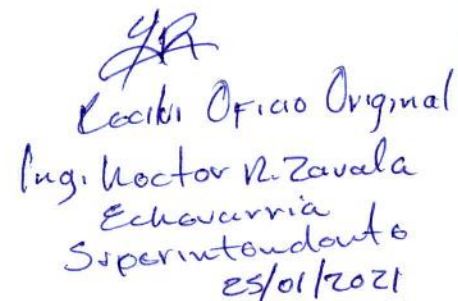 Recibi Oficio Original
Ing. Hector R. Zavala
Echavarria
Superintendente
25/01/2021